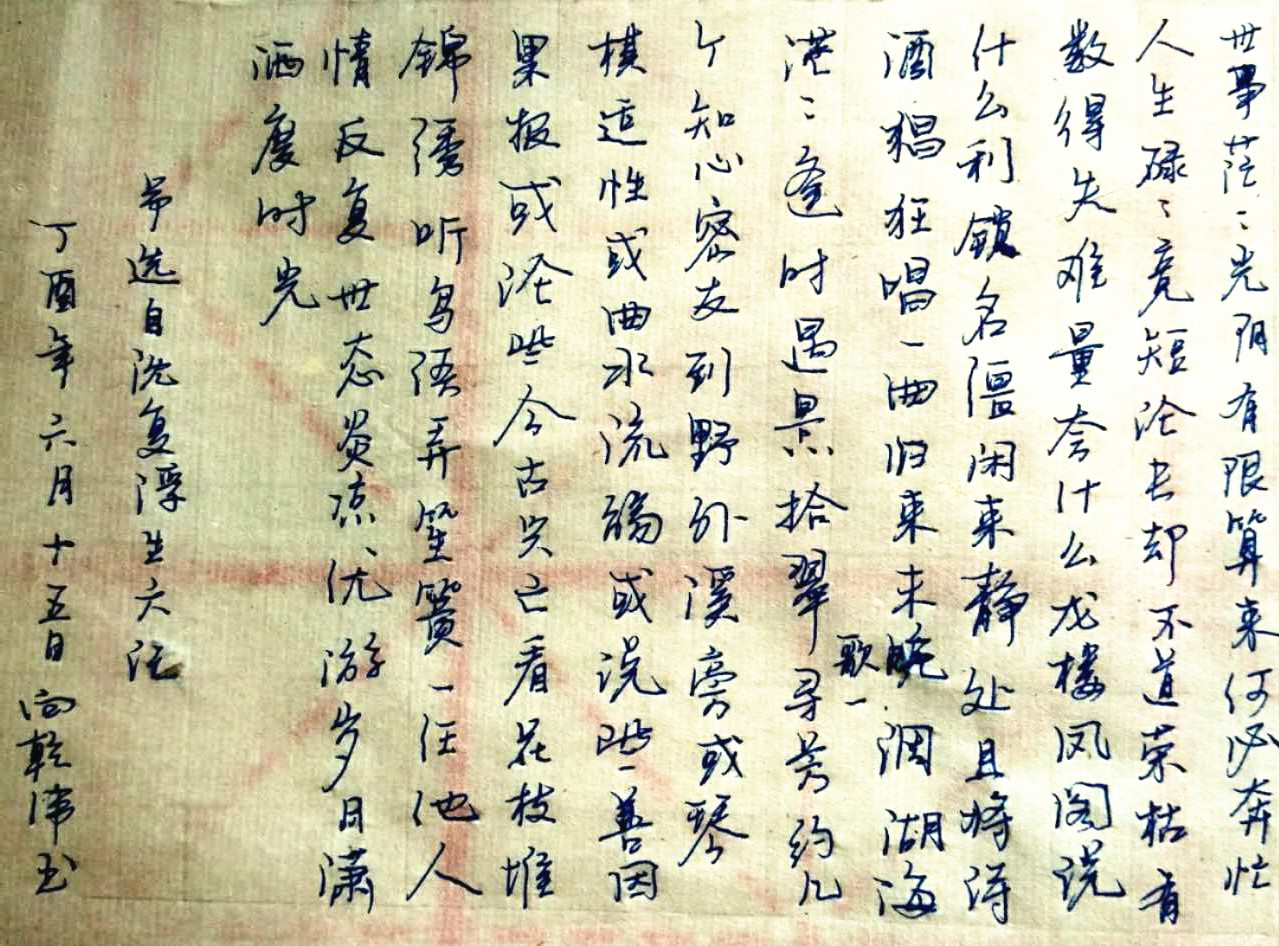 世事茫々光阴有限算来何必奔忙
人生碌々竞短论长却不道荣枯有
数得失难量夸什么龙楼凤阁说
什么利锁名缰闲来静处且将诗
酒猖狂唱一曲归来未晚歌一调湖海
茫々逢时遇景拾翠寻芳约几
个知心密友到野外溪旁或琴
棋适性或曲水流觞或说些善因
果报或论些今古兴亡看花枝堆
锦绣听鸟语弄笙簧一任他人
情反复世态炎凉优游岁日潇
洒度时光
节选自沈复浮生六记
丁酉年六月十五日向乾伟书